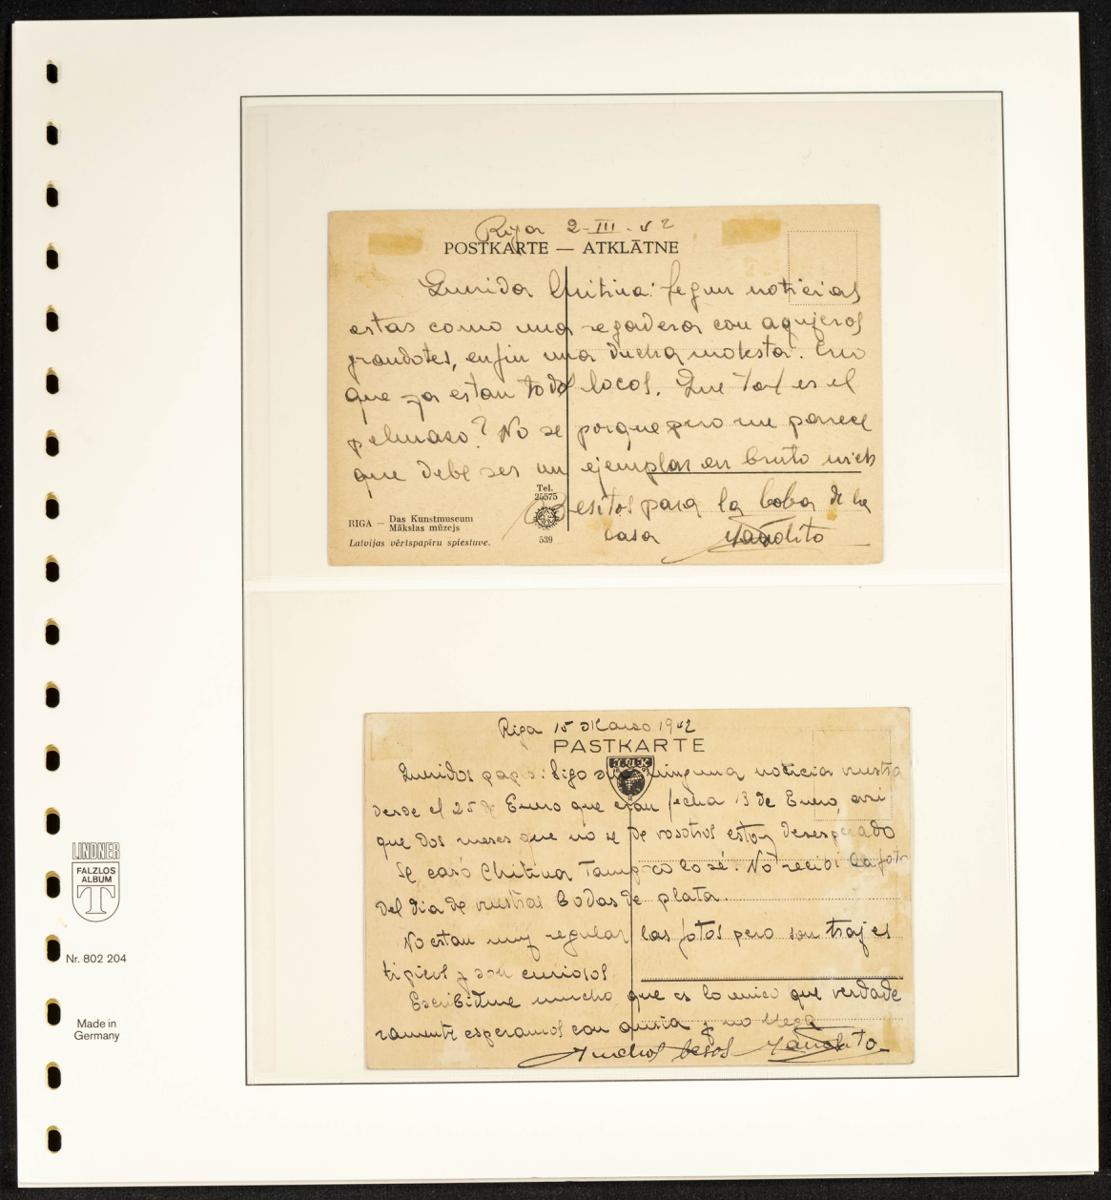 Riga 2-III-42
POSTKARTE — ATKLĀTNE
Querida Chitina: segun noticias
estas como una regadera con agujeros
grandotes, enfin una ducha molesta. Creo
que ya estan todos locos. Que tal es el
pelmaso? No se porque pero me parece
que debe ser un ejemplar en bruto
Besitos para la boba de la
casa Manolito
Tel.
25575
539
RIGA — Das Kunstmuseum
Mākslas mūzejs
Latvijas vērtspapīru spiestuve.
Riga 15 Marzo 1942
PASTKARTE
Queridos papas: Sigo sin ninguna noticia vuestra
desde el 25 de Enero que eran fecha 13 de Enero, asi
que dos meses que no se de vosotros estoy desesperado
Se casó Chitina Tampoco lo sé. No recibi la foto
del dia de vuestras bodas de plata.
No estan muy regular las fotos pero son trajes
tipicos y son curiosos
Escribidme mucho que es lo unico que verdade
ramente esperamos con ansia y no llega
Muchos besos Manolito
LINDNER
FALZLOS
ALBUM
T
Nr. 802 204
Made in
Germany